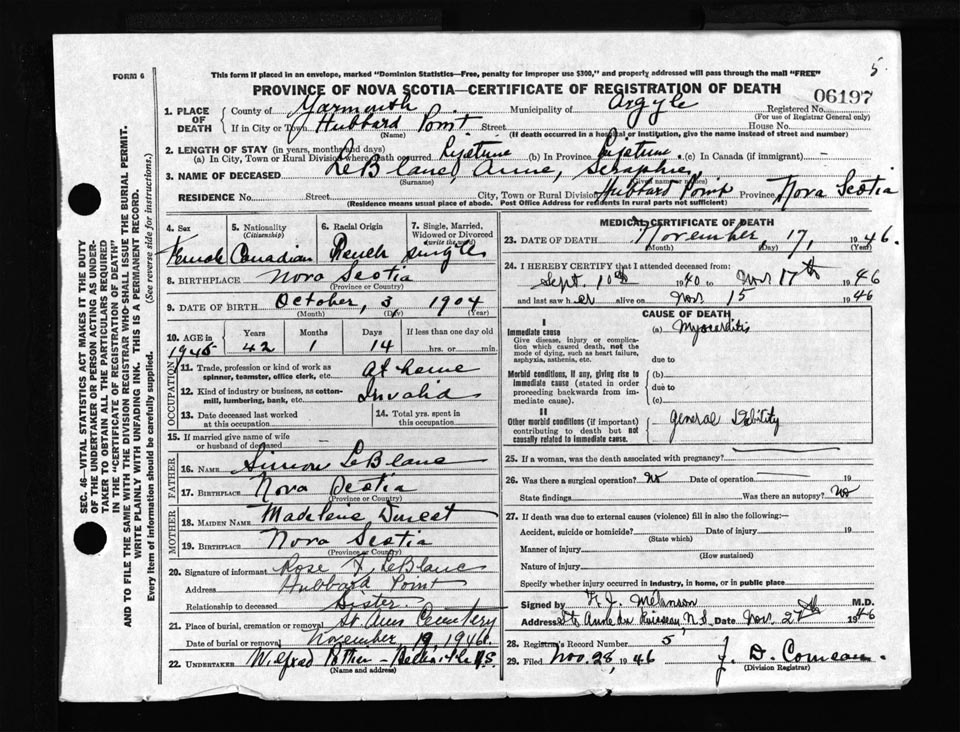 5
FORM 6
This form if placed in an envelope, marked "Dominion Statistics—Free, penalty for improper use $300," and properly addressed will pass through the mail "FREE"
PROVINCE OF NOVA SCOTIA—CERTIFICATE OF REGISTRATION OF DEATH
06197
1. PLACE OF DEATH
County of Yarmouth Municipality of Argyle Registered No.
(For use of Registrar General only)
If in City or Town Hubbard Point Street House No.
(Name) (If death occurred in a hospital or institution, give the name instead of street and number)
2. LENGTH OF STAY (in years, months and days)
(a) In City, Town or Rural Division where death occurred Lifetime (b) In Province Lifetime. (c) In Canada (if immigrant) —
3. NAME OF DECEASED LeBlanc, Anne, Seraphie
(Surname) (Given name or names)
RESIDENCE No. Street City, Town or Rural Division Hubbard Point Province Nova Scotia
(Residence means usual place of abode. Post Office Address for residents in rural parts not sufficient)
SEC. 46—VITAL STATISTICS ACT MAKES IT THE DUTY
OF THE UNDERTAKER OR PERSON ACTING AS UNDER-
TAKER TO OBTAIN ALL THE PARTICULARS REQUIRED
IN THE "CERTIFICATE OF REGISTRATION OF DEATH"
AND TO FILE THE SAME WITH THE DIVISION REGISTRAR WHO SHALL ISSUE THE BURIAL PERMIT.
WRITE PLAINLY WITH UNFADING INK. THIS IS A PERMANENT RECORD.
Every item of information should be carefully supplied. (See reverse side for instructions.)
4. Sex 5. Nationality (Citizenship) 6. Racial Origin 7. Single, Married, Widowed or Divorced (write the word)
Female Canadian French single
8. BIRTHPLACE Nova Scotia
(Province or Country)
9. DATE OF BIRTH October, 3, 1904
(Month) (Day) (Year)
10. AGE Years Months Days If less than one day old
42 1 14 hrs. or min.
OCCUPATION
11. Trade, profession or kind of work as spinner, teamster, office clerk, etc. at home
12. Kind of industry or business, as cotton-mill, lumbering, bank, etc. Invalid
13. Date deceased last worked at this occupation
14. Total yrs. spent in this occupation
15. If married give name of wife or husband of deceased
FATHER
16. NAME Simon LeBlanc
17. BIRTHPLACE Nova Scotia
(Province or Country)
MOTHER
18. MAIDEN NAME Madeleine
19. BIRTHPLACE Nova Scotia
(Province or Country)
20. Signature of informant Rose LeBlanc
Address Hubbard Point
Relationship to deceased Sister
21. Place of burial, cremation or removal St Anns Cemetery
Date of burial or removal November 19, 1946.
22. UNDERTAKER Wilfred Pothier - Belleville N.S.
(Name and address)
MEDICAL CERTIFICATE OF DEATH
23. DATE OF DEATH November, 17, 1946.
(Month) (Day) (Year)
24. I HEREBY CERTIFY that I attended deceased from:
Sept. 10th 1940 to Nov 17th 1946
and last saw her alive on Nov 15 1946
CAUSE OF DEATH
I
Immediate cause
Give disease, injury or complication which caused death, not the mode of dying, such as heart failure, asphyxia, asthenia, etc.
(a) Myocarditis
due to
Morbid conditions, if any, giving rise to immediate cause (stated in order proceeding backwards from immediate cause).
(b)
due to
(c)
II
Other morbid conditions (if important) contributing to death but not causally related to immediate cause.
General Debility
25. If a woman, was the death associated with pregnancy? —
26. Was there a surgical operation? No Date of operation — 19
State findings Was there an autopsy? No
27. If death was due to external causes (violence) fill in also the following:
Accident, suicide or homicide? Date of injury 19
(State which)
Manner of injury
(How sustained)
Nature of injury
Specify whether injury occurred in industry, in home, or in public place
Signed by J. Melanson M.D.
Address Ste Anne du Ruisseau, N.S. Date Nov. 27th 1946
28. Registrar's Record Number 5
29. Filed Nov. 28, 1946 J. D. Comeau.
(Division Registrar)